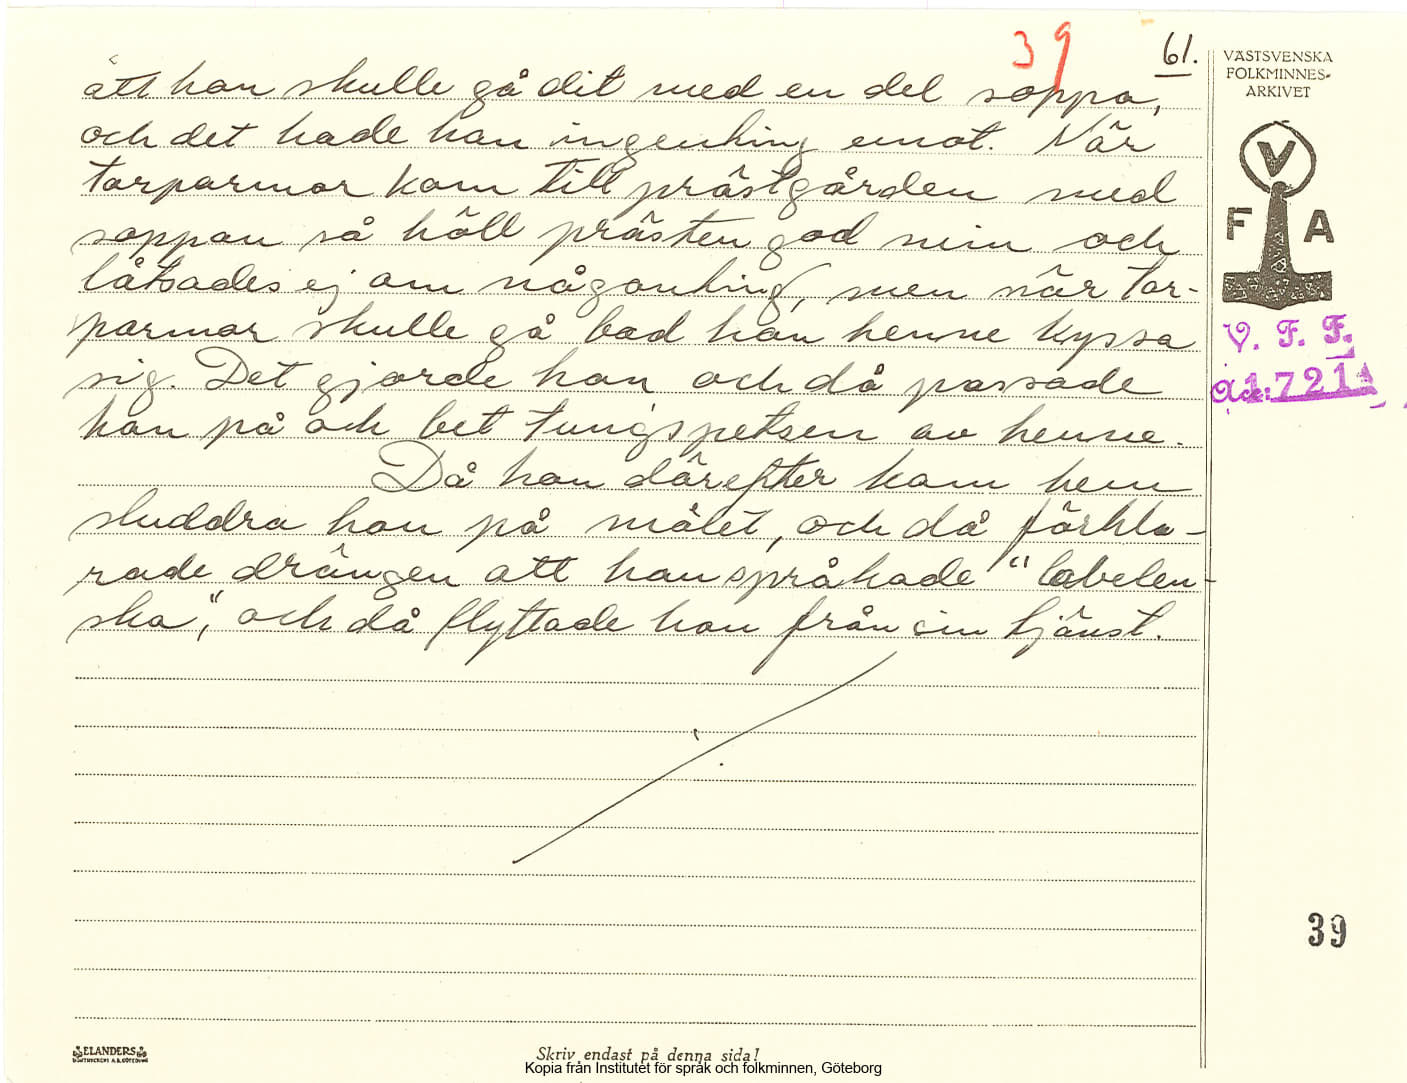 39
61.
att hon skulle gå dit med en del soppa,
och det hade hon ingenting emot. När
torparmor kom till prästgården med
soppan så höll prästen god min och
låtsades ej om någonting, men när tor-
parmor skulle gå bad han henne kyssa
sig. Det gjorde hon och då passade
han på och bet tungspetsen av henne.
Då hon därefter kom hem
sluddra hon på målet, och då förkla-
rade drängen att hon språkade "labelen-
ska", och då flyttade han från sin tjänst.
VÄSTSVENSKA
FOLKMINNES-
ARKIVET
V
F A
V. F. F.
Acc: 7211
39
ELANDERS
Skriv endast på denna sida!
Kopia från Institutet för språk och folkminnen, Göteborg